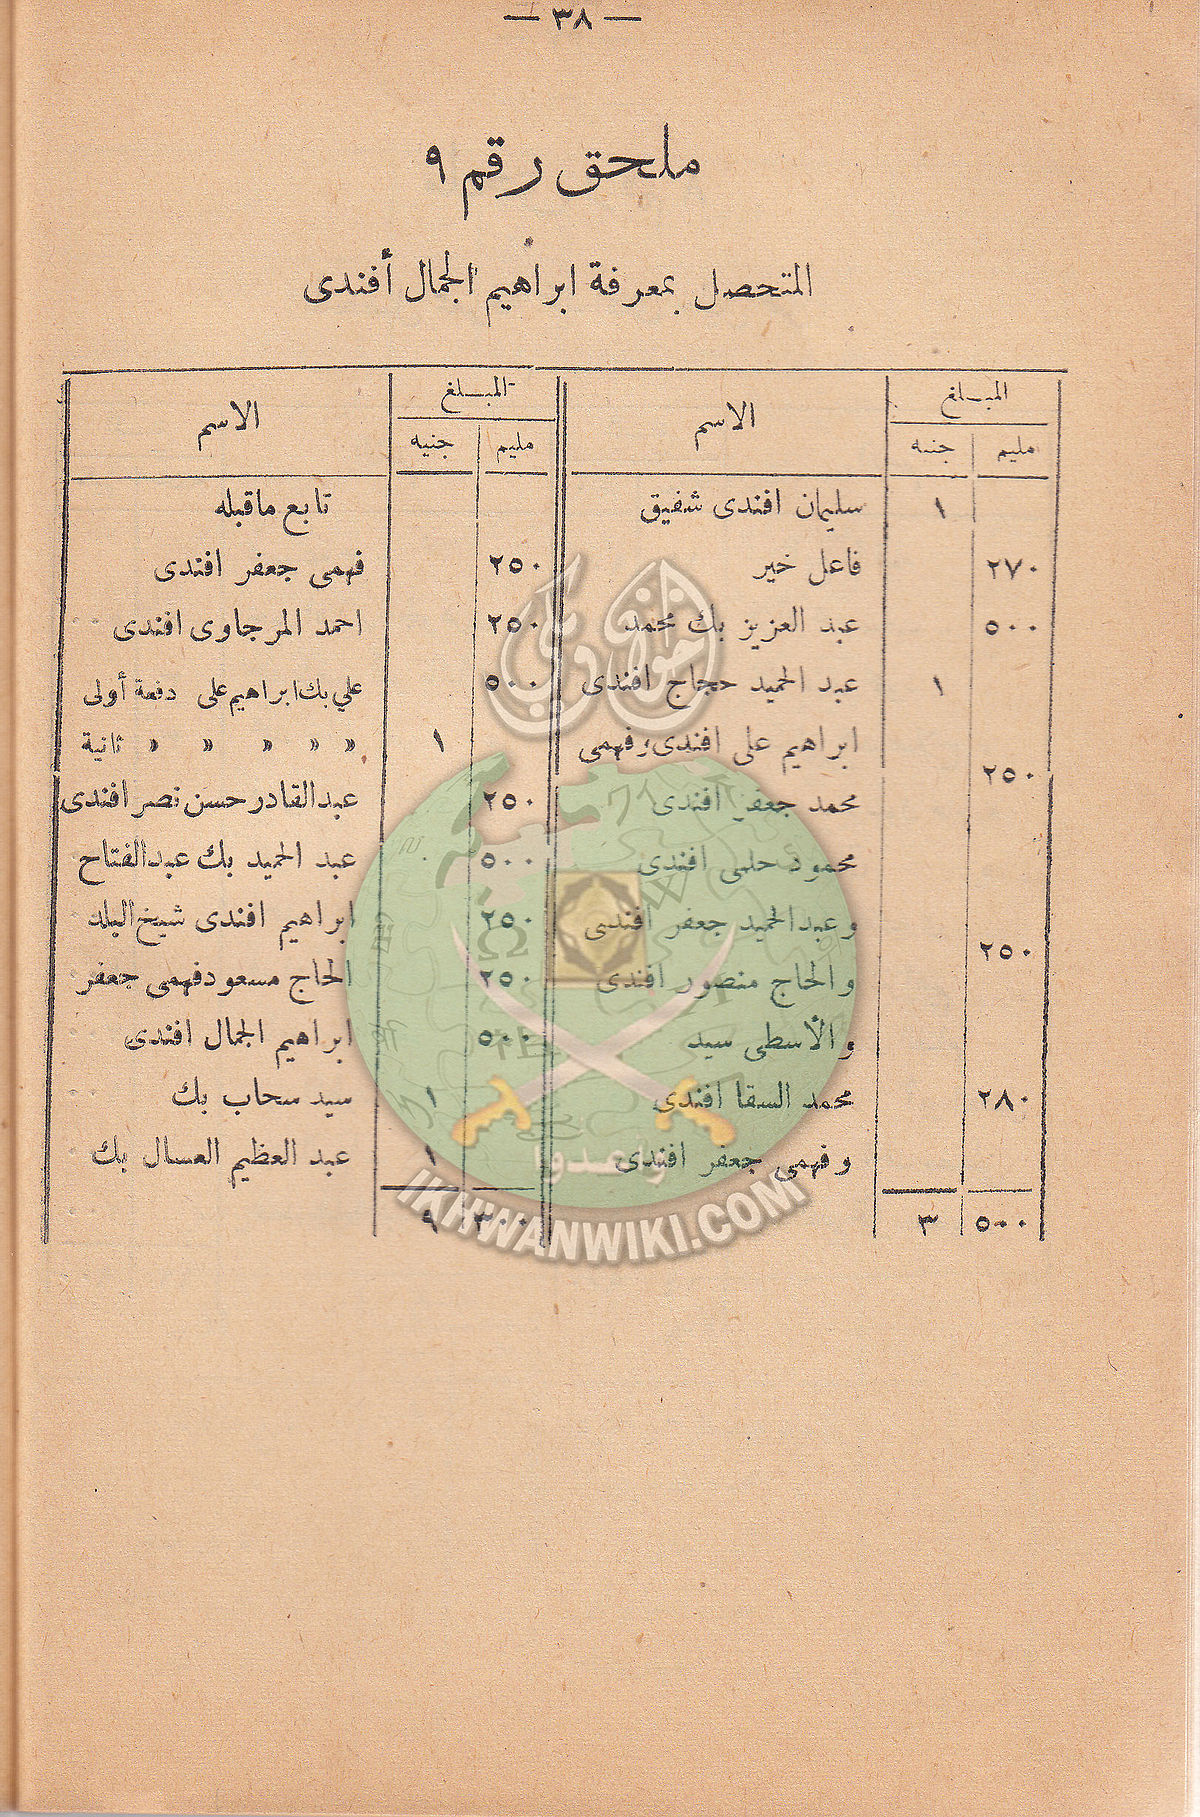 — ٣٨ —
ملحق رقم ٩
المتحصل بمعرفة ابراهيم الجمال أفندى
المبلغ الاسم
مليم جنيه
١ سليمان افندى شفيق
٢٧٠ فاعل خير
٥٠٠ عبد العزيز بك محمد
١ عبد الحميد حجاج افندى
ابراهيم على افندى وفهمى
٢٥٠
محمد جعفر افندى
محمود حلمى افندى
وعبد الحميد جعفر افندى
٢٥٠
والحاج منصور افندى
والأسطى سيد
٢٨٠ محمد السقا افندى
وفهمى جعفر افندى
٥٠٠ ٣
المبلغ الاسم
مليم جنيه
تابع ماقبله
٢٥٠ فهمى جعفر افندى
٢٥٠ احمد المرجاوى افندى
٥٠٠ علي بك ابراهيم على دفعة أولى
١ » » » » » ثانية
٢٥٠ عبد القادر حسن نصر افندى
٥٠٠ عبد الحميد بك عبد الفتاح
٢٥٠ ابراهيم افندى شيخ البلد
٢٥٠ الحاج مسعود فهمى جعفر
٥٠٠ ابراهيم الجمال افندى
١ سيد سحاب بك
١ عبد العظيم العسال بك
٣٠٠ ٩
إخوان ويكي
وأعدوا
IKHWANWIKI.COM